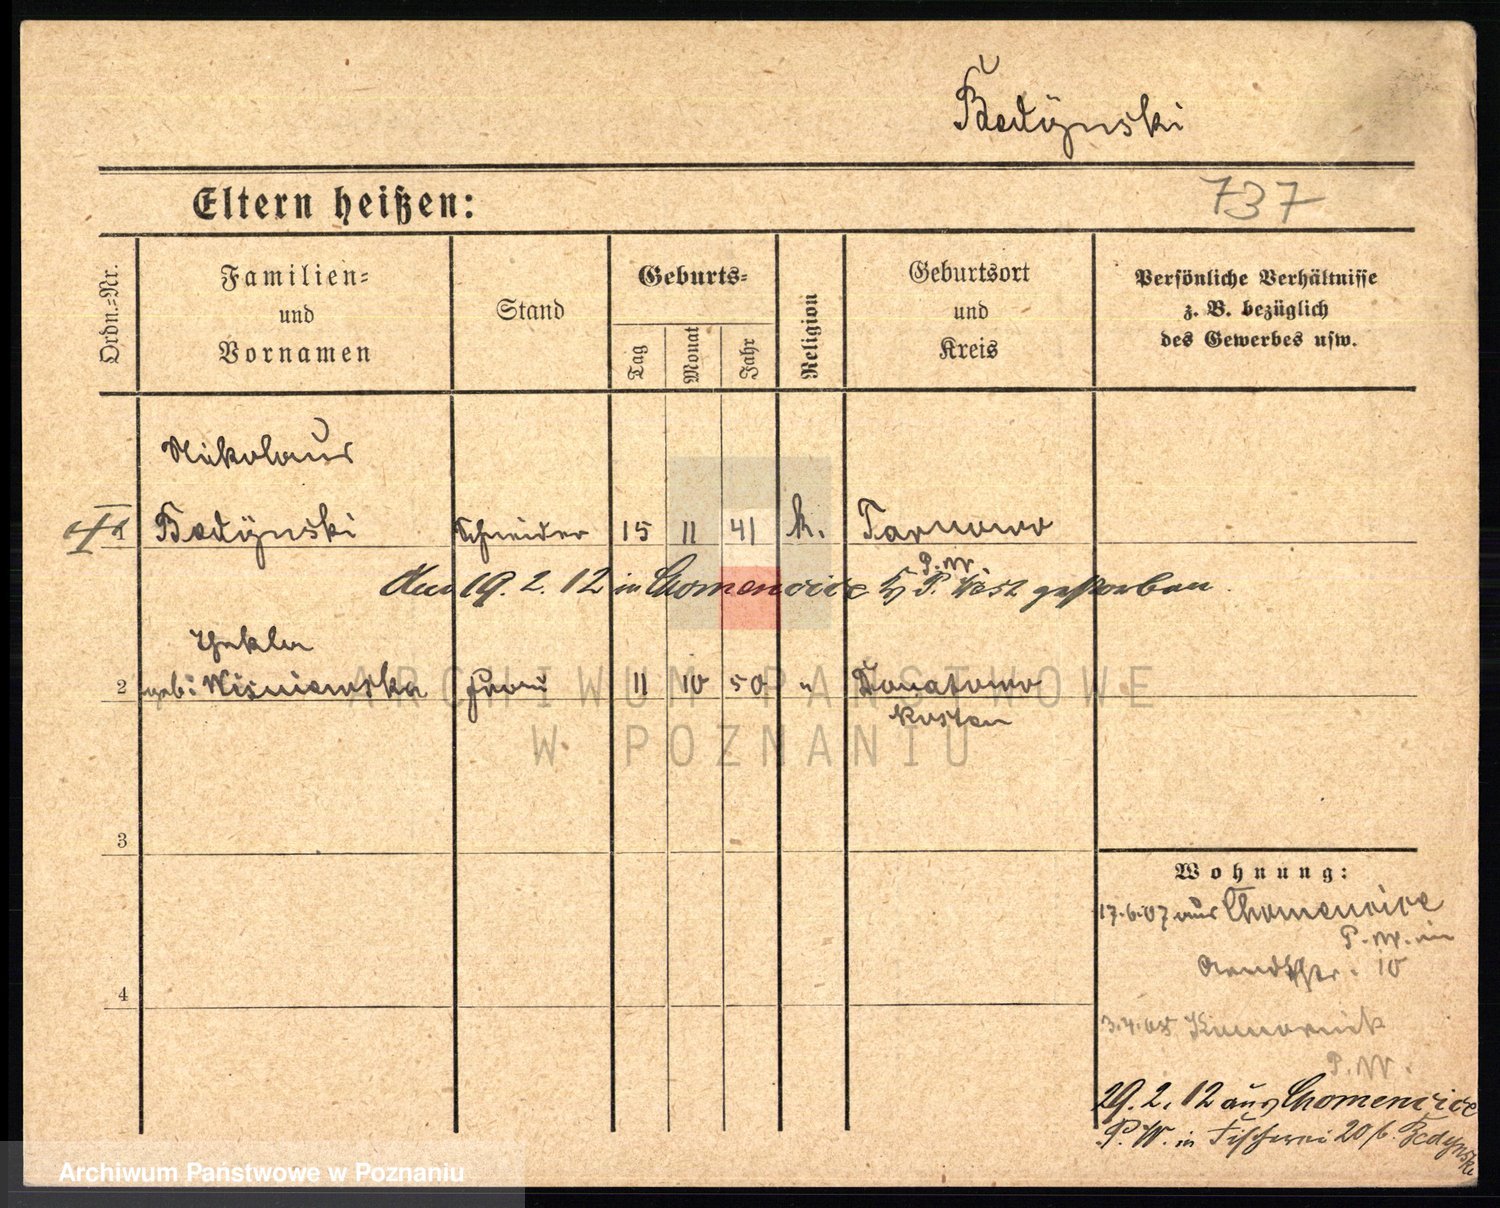 Bedynski
Eltern heißen:
737
Ordn.=Nr.
Familien=
und
Vornamen
Stand
Geburts=
Tag
Monat
Jahr
Religion
Geburtsort
und
Kreis
Persönliche Verhältnisse
z. B. bezüglich
des Gewerbes usw.
Nikolaus
1 Bedynski Schneider 15 11 41 k. Tarnowo
P.W.
den 19. 2. 12 in Chomencice P. West gestorben
Thekla
2 geb: Wisniewska Frau 11 10 50 " Donatowo
Kosten
3
4
Wohnung:
17.6.07 aus Chomencice
P.W. in
10
3.4.08 Komornik
P.W.
29.2.12 aus Chomencice
P.W. in Fischerei 20 b.
ARCHIWUM PAŃSTWOWE
W POZNANIU
Archiwum Państwowe w Poznaniu